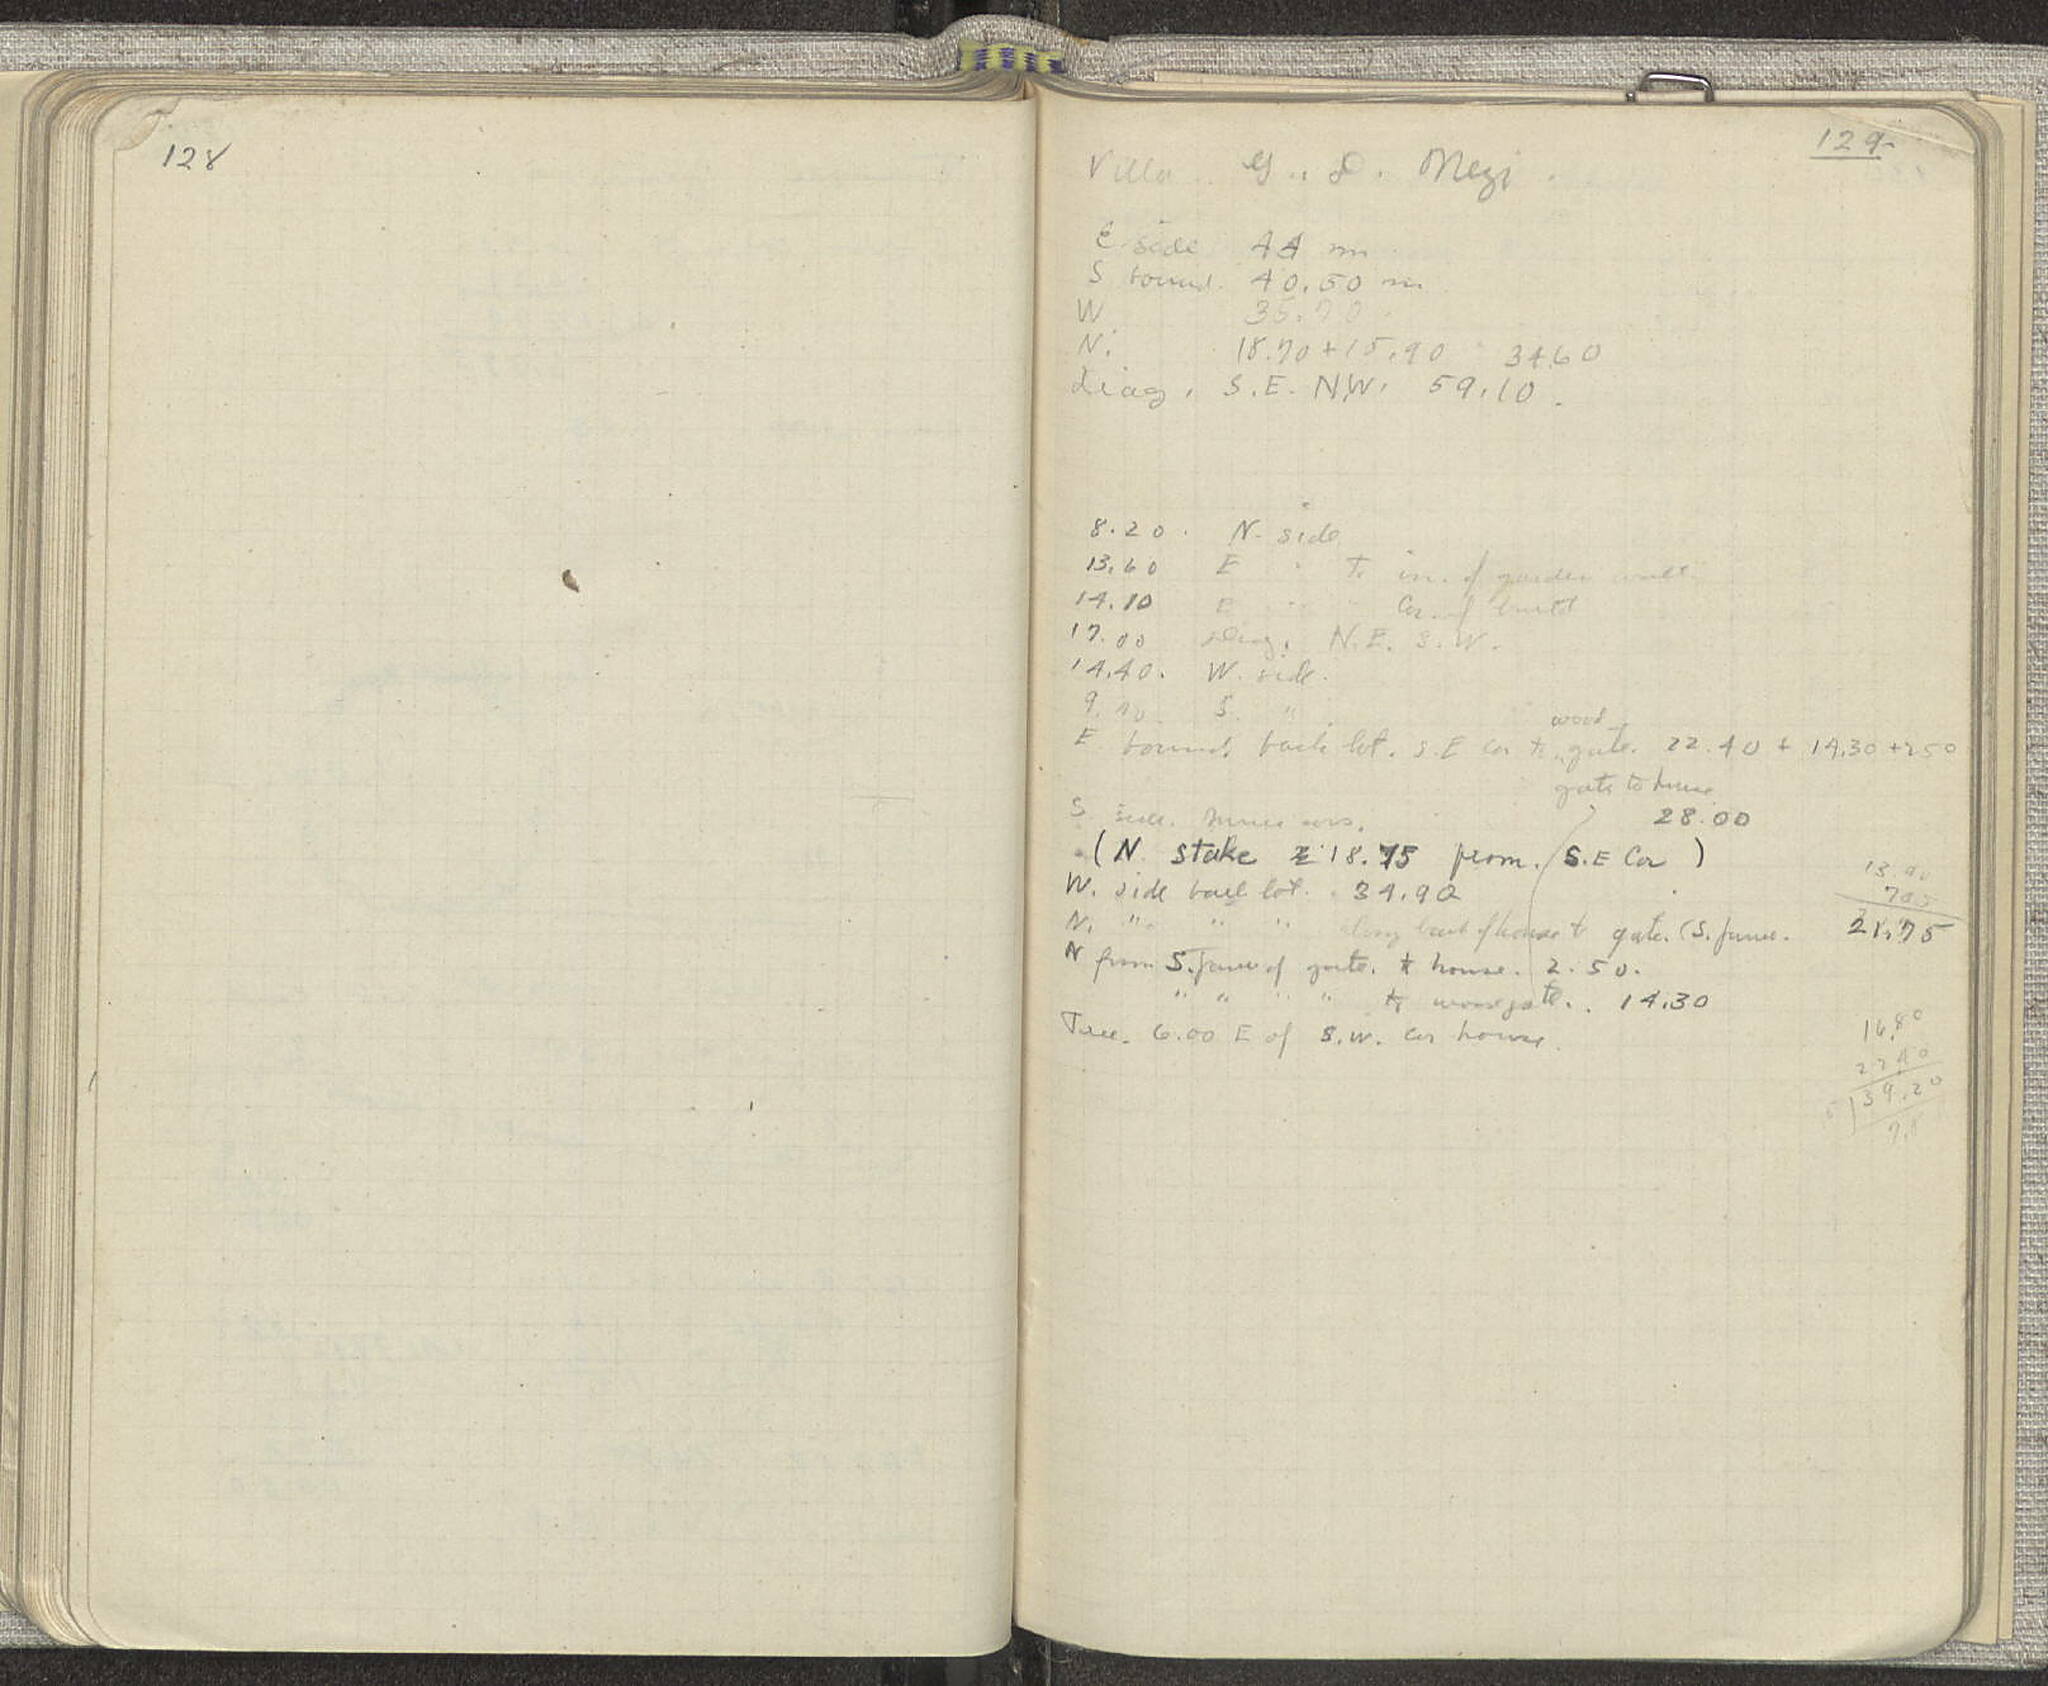 128
129
Villa G. D. Mezi
E side 44 m
S bound. 40.50 m
W 35.70
N. 18.70 + 15.90 34.60
diag. S.E. N.W. 59.10.
8.20. N. side
13.60 E " to in. of garden wall
14.10 E " " Cor. of build
17.00 diag. N.E. S.W.
14.40. W. side.
9. S. "
wood
E bound. back lot. S.E Cor to gate. 22.40 + 14.30 + 2.50
gate to house
S side. 28.00
(N. stake 18.75 from S.E Cor)
W. side back lot. 34.90
N. " " " along back of house to gate. (S. 21.75
13.90
N from S. of gate. to house. 2.50.
" " " " to wood gate. 14.30
Tree. 6.00 E of S.W. cor house.
16.80
22.40
5 39.20
7.8